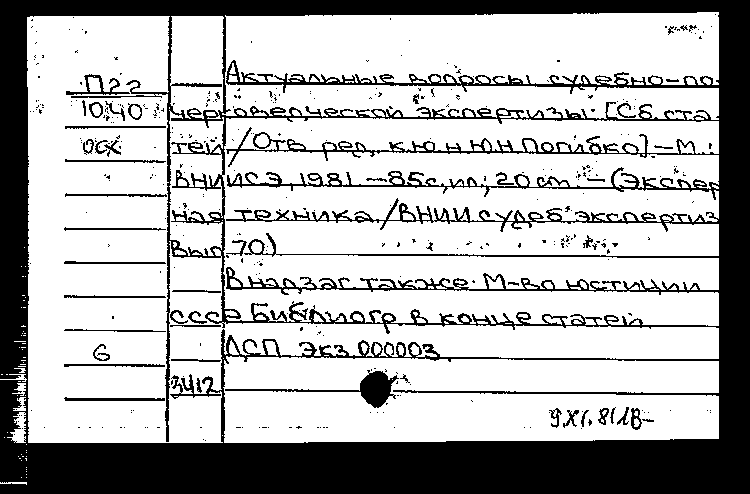 П22 Актуальные вопросы судебно-по-
10.40 черковедческой экспертизы: [Сб. ста-
тей / Отв. ред. к.ю.н Ю.Н. Погибко] - М.:
ВНИИСЭ, 1981. - 85с, ил; 20 см. - (Экспер
ная техника / ВНИИ судеб. экспертиз
Вып 70)
В надзаг также: М-во юстиции
СССР Библиогр. в конце статей
6 ДСП Экз. 000003.
3412
9.XI.81